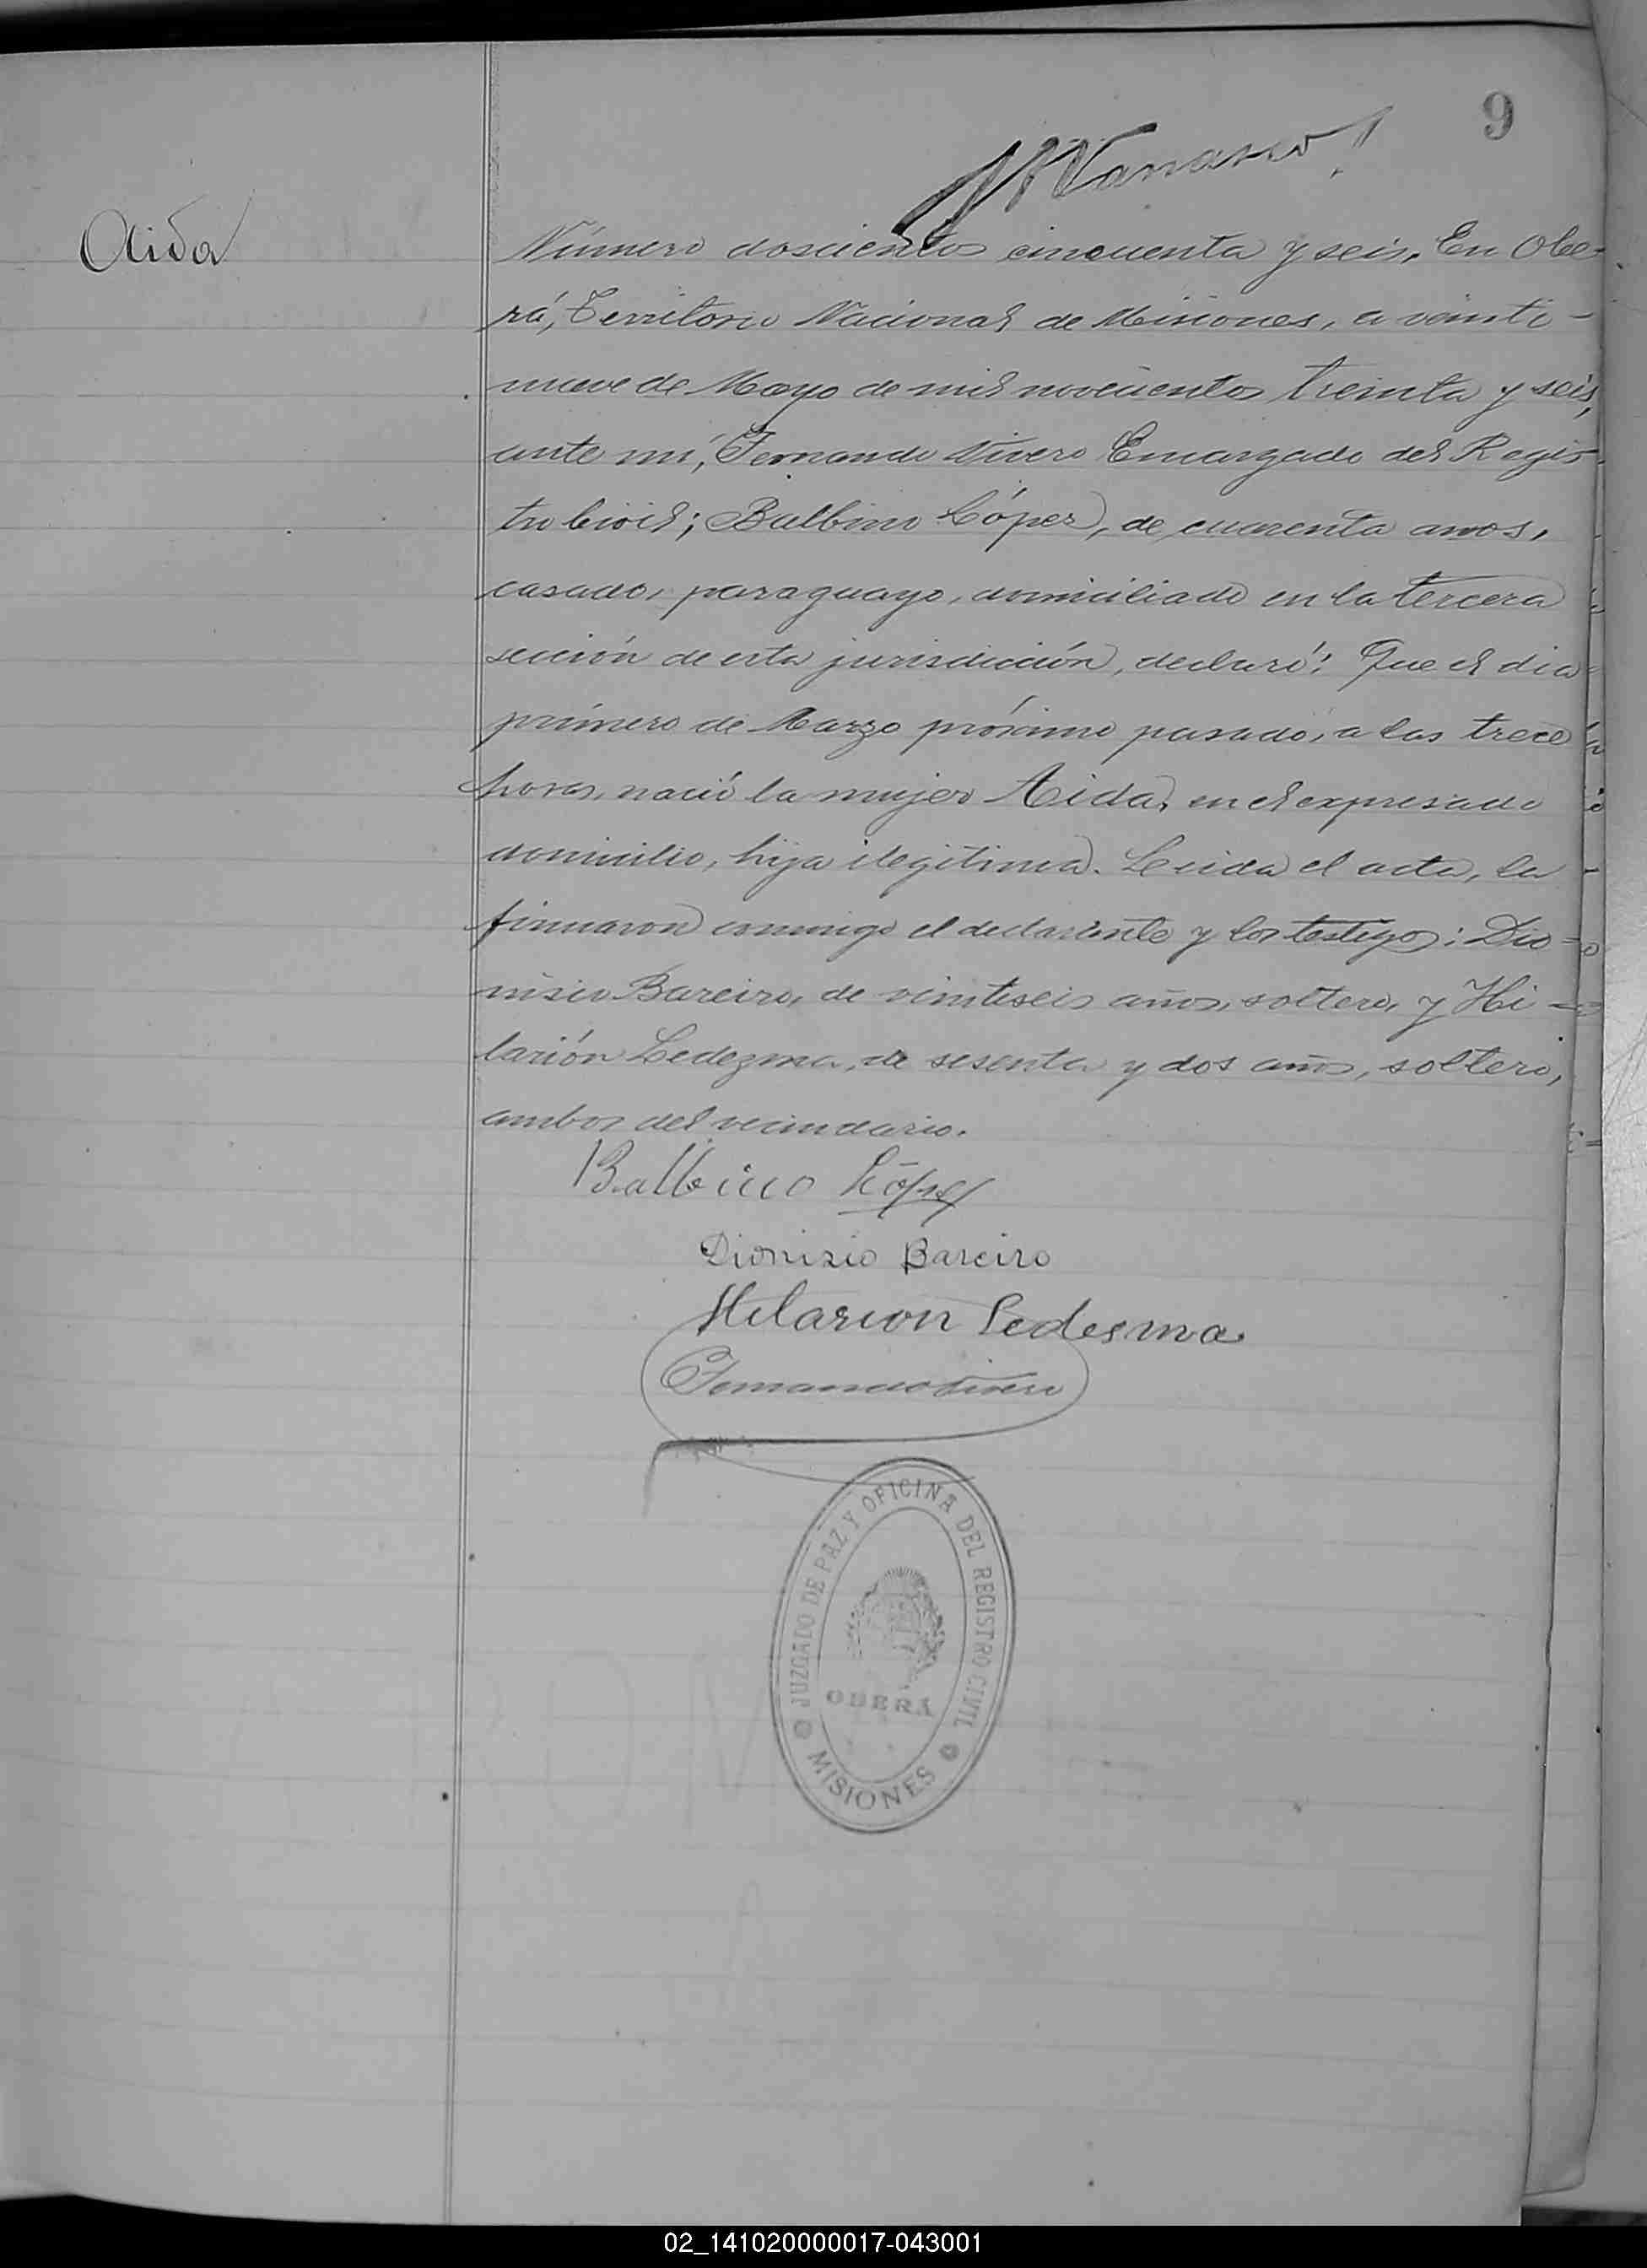 9
Aida
Número doscientos cincuenta y seis. En Obe-
rá, Territorio Nacional de Misiones, a veinti-
nueve de Mayo de mil novecientos treinta y seis,
ante mí, Fernando Vivero Encargado del Regis-
tro Civil; Balbino López, de cuarenta años,
casado, paraguayo, domiciliado en la tercera
sección de esta jurisdicción, declaró: Que el dia
primero de Marzo próximo pasado, a las trece
horas, nació la mujer Aida, en el expresado
domicilio, hija ilegitima. Leida el acta, la
firmaron conmigo el declarante y los testigos: Dio-
nisio Bareiro, de veintiseis años, soltero, y Hi-
larión Ledezma, de sesenta y dos años, soltero,
ambos del vecindario.
Balbino López
Dionisio Bareiro
Hilarion Ledesma
Fernando Vivero
JUZGADO DE PAZ Y OFICINA DEL REGISTRO CIVIL
OBERA
MISIONES
02_141020000017-043001